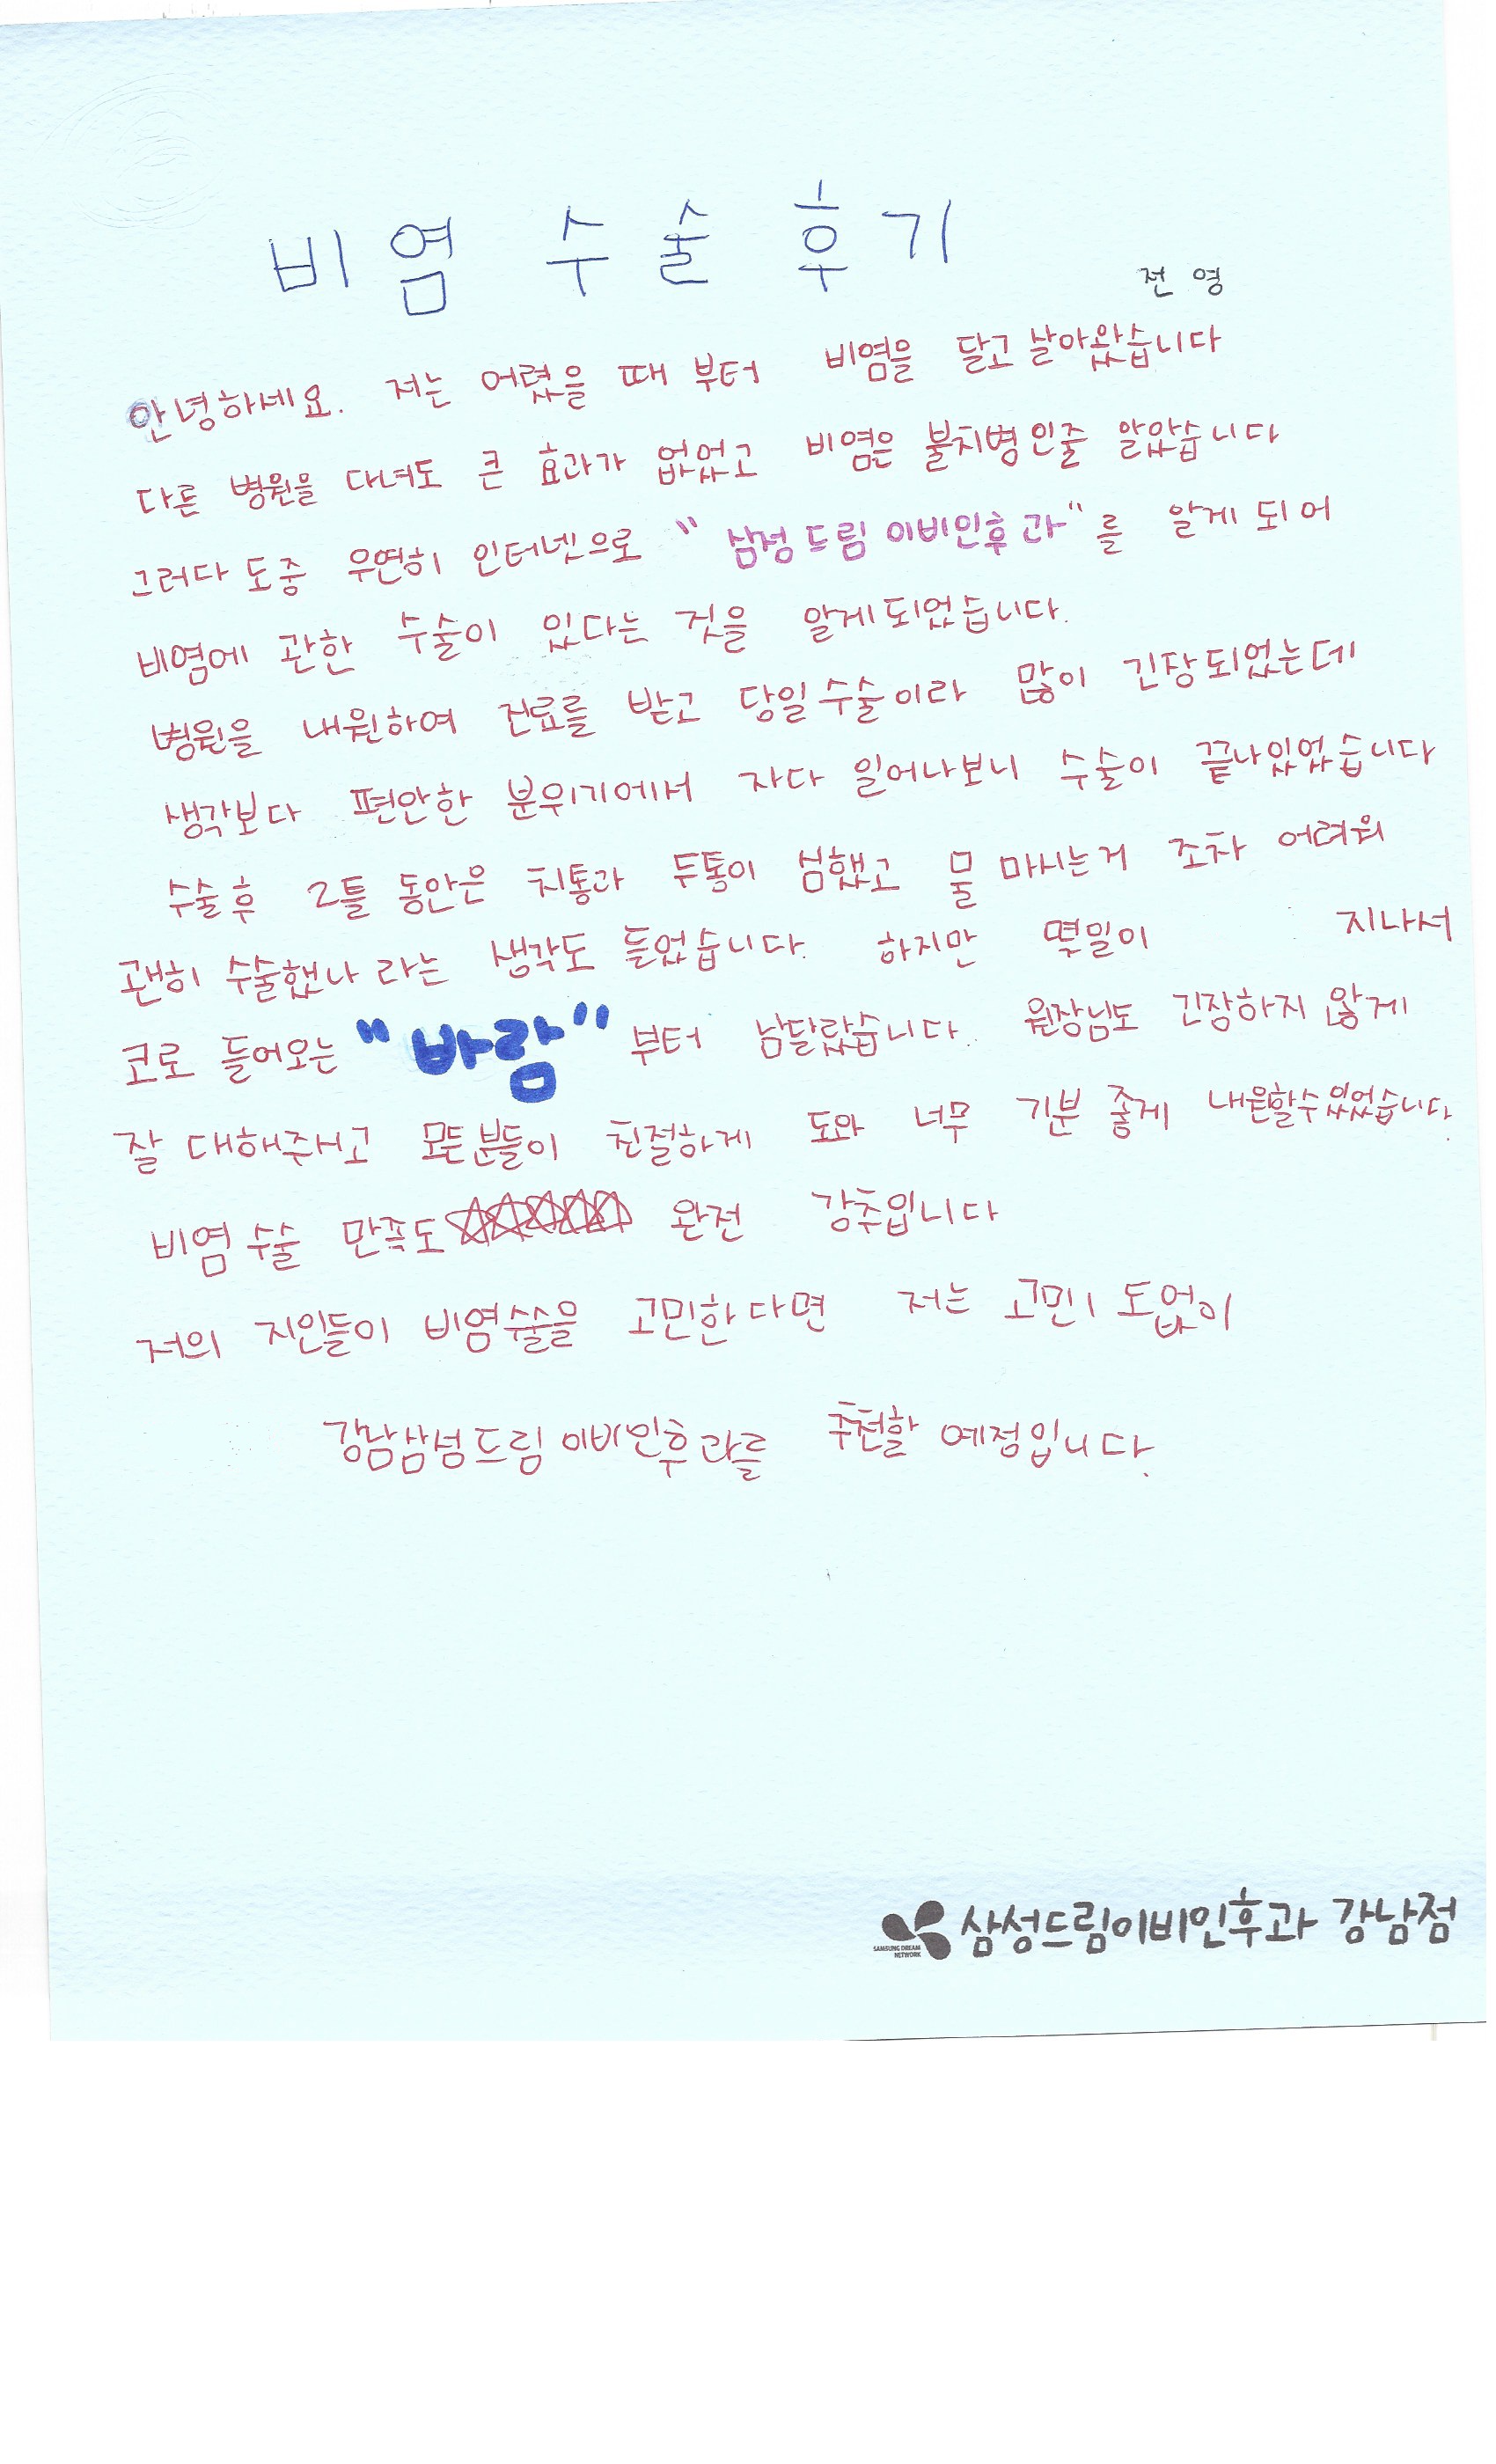 비염 수술 후기
전 영
안녕하세요. 저는 어렸을 때 부터 비염을 달고 살아왔습니다
다른 병원을 다녀도 큰 효과가 없었고 비염은 불치병인줄 알았습니다
그러다 도중 우연히 인터넷으로 "삼성드림이비인후과"를 알게 되어
비염에 관한 수술이 있다는 것을 알게되었습니다.
병원을 내원하여 진료를 받고 당일수술이라 많이 긴장되었는데
생각보다 편안한 분위기에서 자다 일어나보니 수술이 끝나있었습니다
수술후 2틀 동안은 치통과 두통이 심했고 물 마시는거 조차 어려워
괜히 수술했나 라는 생각도 들었습니다. 하지만 몇일이 지나서
코로 들어오는 "바람" 부터 남달랐습니다. 원장님도 긴장하지 않게
잘 대해주시고 모든분들이 친절하게 도와 너무 기분 좋게 내원할수있었습니다.
비염 수술 만족도☆☆☆☆☆ 완전 강추입니다
저의 지인들이 비염수술을 고민한다면 저는 고민 1 도없이
강남삼성드림이비인후과를 추천할 예정입니다.
SAMSUNG DREAM
NETWORK
삼성드림이비인후과 강남점